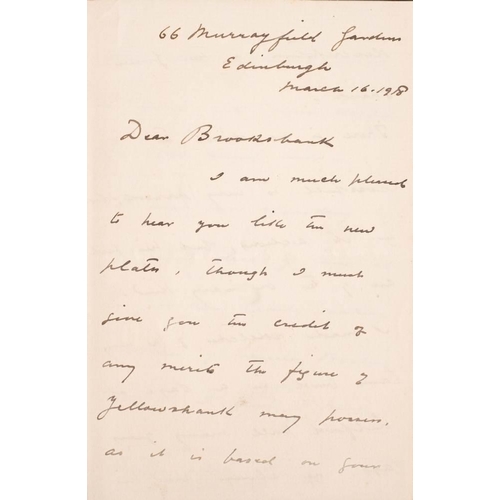 66 Murrayfield Gardens
Edinburgh
March 16. 1918
Dear Brooksbank
I am much pleased
to hear you like the new
plate, though I must
give you the credit of
any merits the figure of
Yellowshank may possess,
as it is based on your